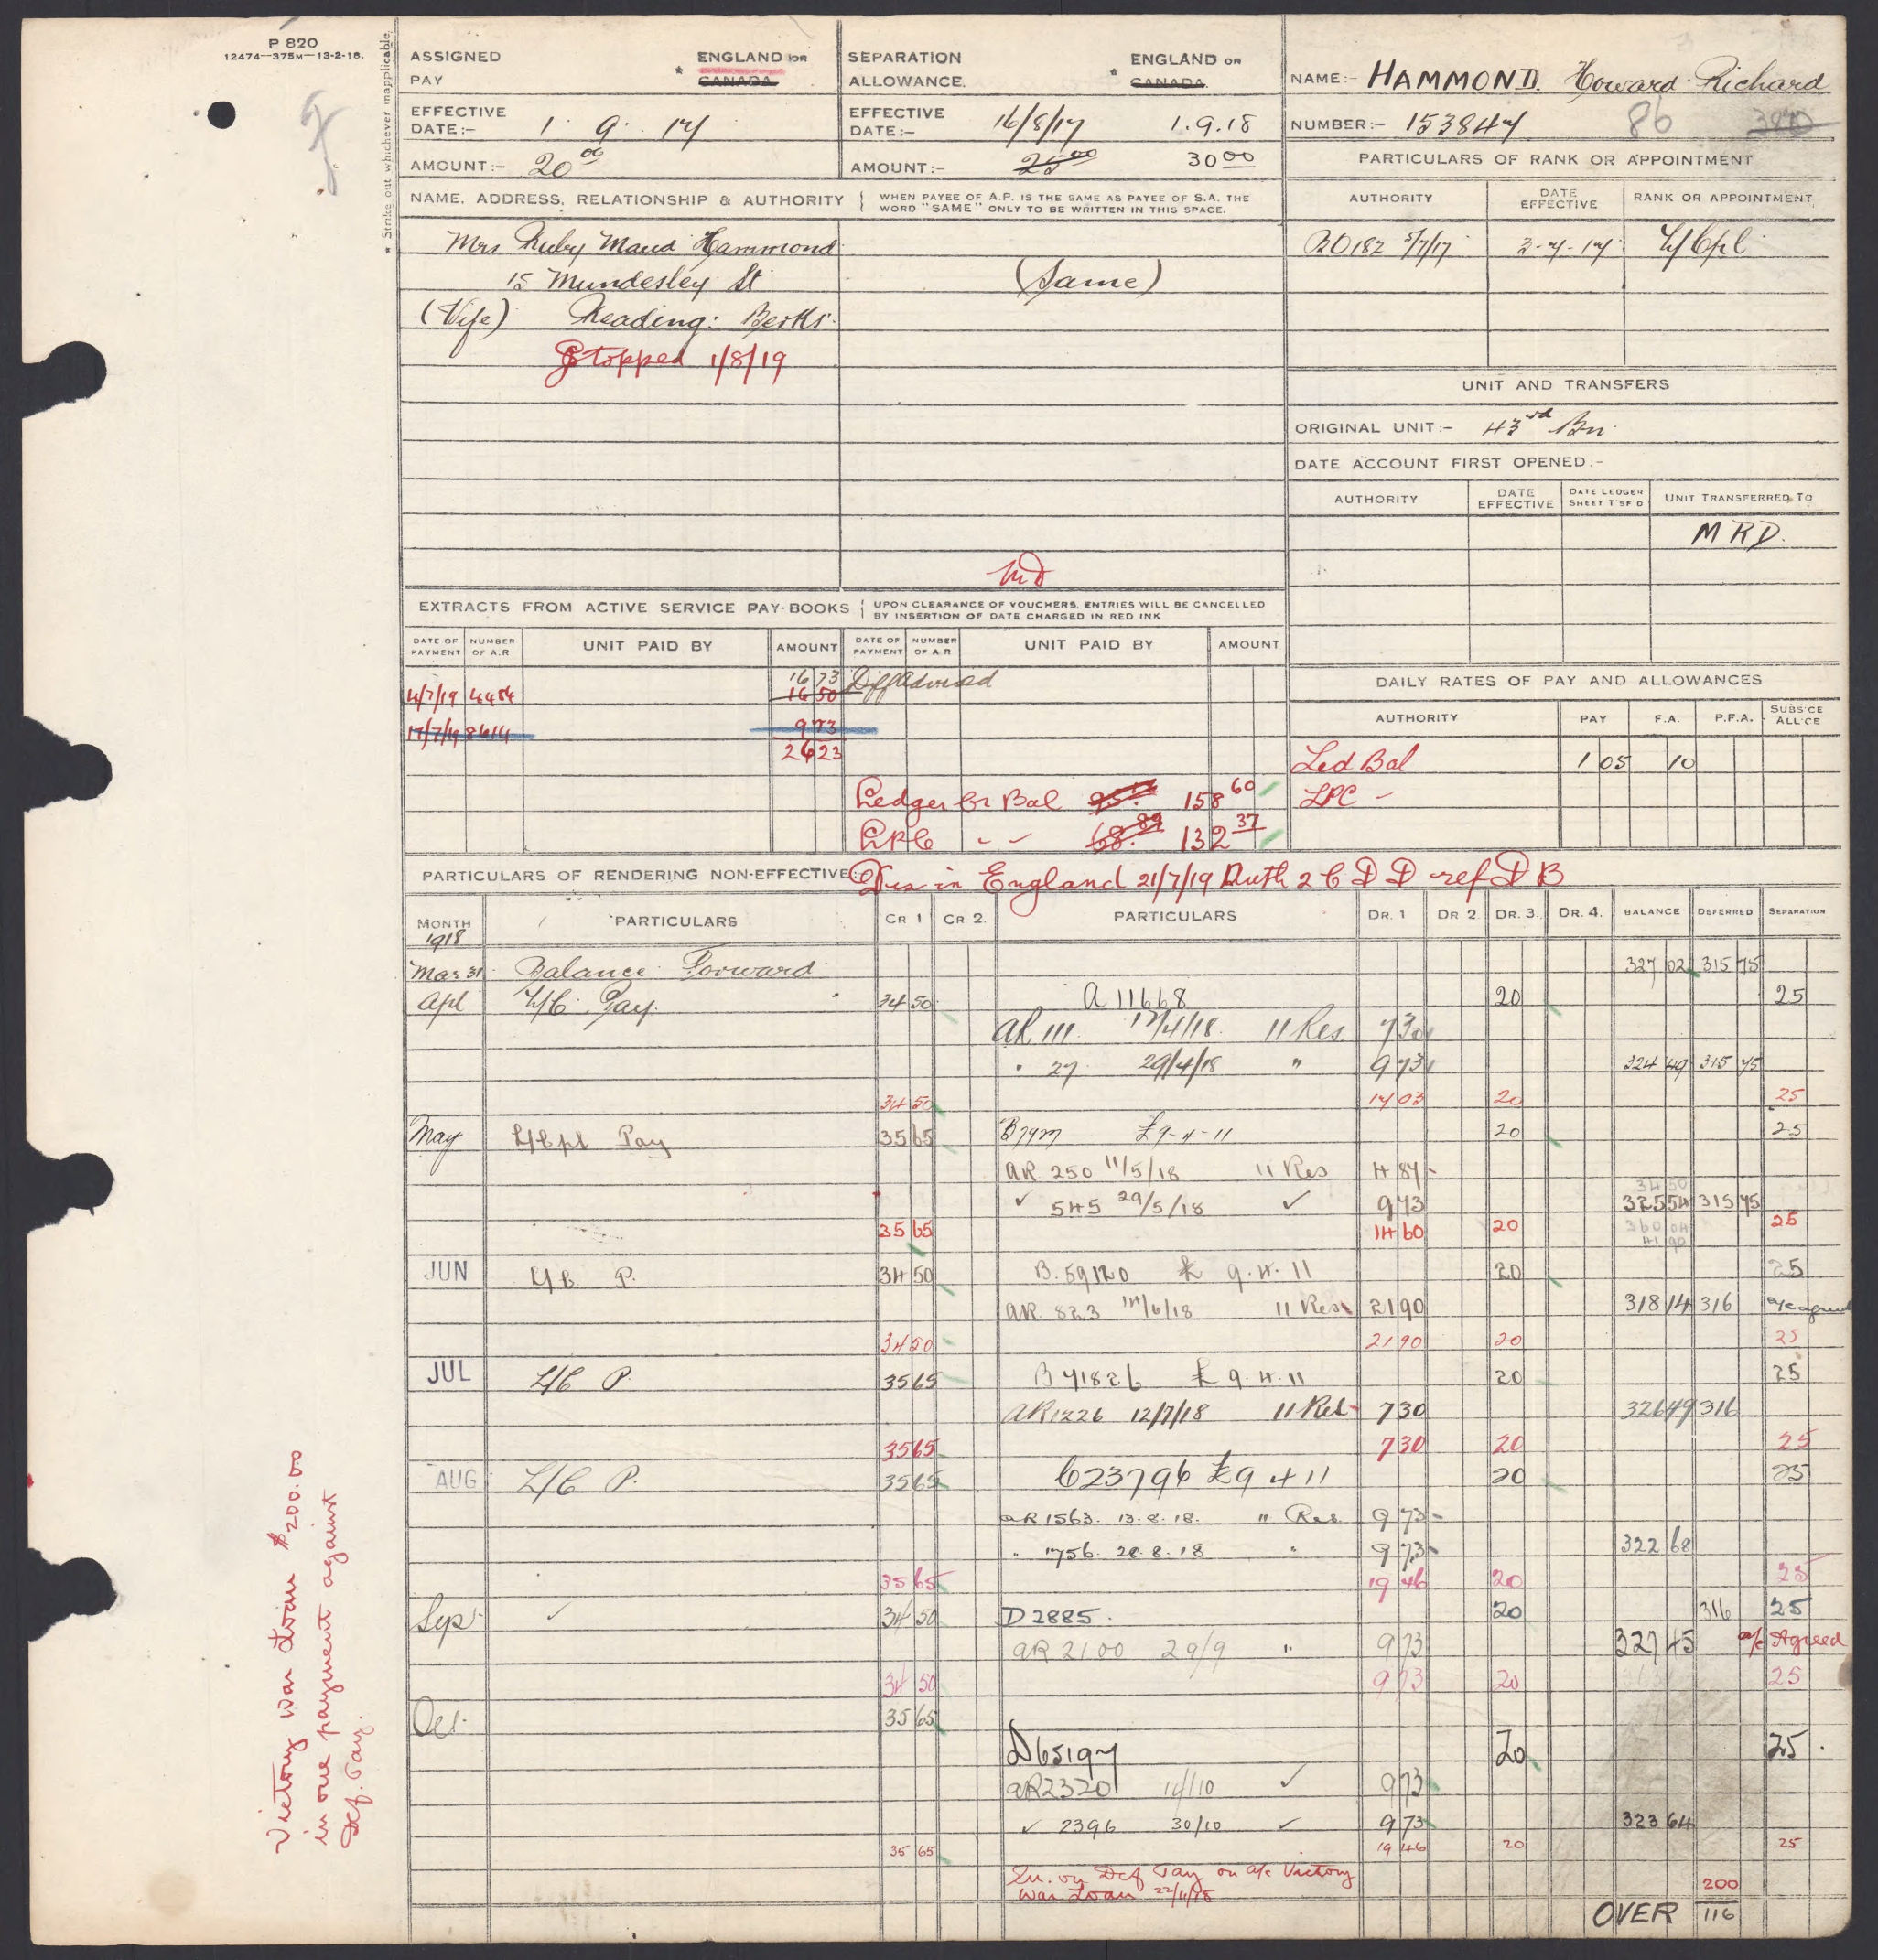 P 820
12474—375M—13-2-18.
* Strike out whichever inapplicable.
ASSIGNED PAY * ENGLAND or CANADA
EFFECTIVE DATE:- 1 9 17
AMOUNT:- 20 00
SEPARATION ALLOWANCE. * ENGLAND OR CANADA.
EFFECTIVE DATE:- 16/8/17 1.9.18
AMOUNT:- 25 00 30 00
NAME:- HAMMOND. Howard Richard
NUMBER:- 153847 86 3870
PARTICULARS OF RANK OR APPOINTMENT
AUTHORITY DATE EFFECTIVE RANK OR APPOINTMENT
BO182 5/7/17 3-7-17 L/Cpl
NAME, ADDRESS, RELATIONSHIP & AUTHORITY { WHEN PAYEE OF A.P. IS THE SAME AS PAYEE OF S.A. THE
WORD "SAME" ONLY TO BE WRITTEN IN THIS SPACE.
Mrs Ruby Maud Hammond
15 Mundesley St (Same)
(Wife) Reading: Berks.
Stopped 1/8/19
UNIT AND TRANSFERS
ORIGINAL UNIT:- 43rd Bn.
DATE ACCOUNT FIRST OPENED.-
AUTHORITY DATE EFFECTIVE DATE LEDGER SHEET T'SF'D UNIT TRANSFERRED TO
M R D.
EXTRACTS FROM ACTIVE SERVICE PAY-BOOKS { UPON CLEARANCE OF VOUCHERS, ENTRIES WILL BE CANCELLED
BY INSERTION OF DATE CHARGED IN RED INK
DATE OF PAYMENT NUMBER OF A.R UNIT PAID BY AMOUNT DATE OF PAYMENT NUMBER OF A.R. UNIT PAID BY AMOUNT
16 73
4/7/19 4484 16 50
17/7/19 8614 9 73
26 23
DAILY RATES OF PAY AND ALLOWANCES
AUTHORITY PAY F.A. P.F.A. SUBS'CE ALL'CE
Led Bal 1 05 10
LPC -
Ledger Cr Bal 158 60
LPC - - 68.89 132 37
PARTICULARS OF RENDERING NON-EFFECTIVE: Dis in England 21/7/19 Auth 2 C D D ref D B
MONTH PARTICULARS CR 1 CR 2. PARTICULARS DR. 1 DR 2. DR. 3. DR. 4. BALANCE DEFERRED SEPARATION
1918
Mar 31 Balance Forward 327 02 315 75
Apl L/C. Pay. 34 50 A 11668 20 25
AR 111. 17/4/18. 11 Res 7 30
" 27 29/4/18 " 9 73 324 49 315 75
34 50 17 03 20 25
May L/Cpl Pay 35 65 B7927 £9-4-11 20 25
AR 250 11/5/18 11 Res 4 87
✓ 545 29/5/18 ✓ 9 73 325 54 315 75
35 65 14 60 20 25
JUN L/C P. 34 50 B.59120 £ 9.4.11 20 25
AR. 823 14/6/18 11 Res 21 90 318 14 316 a/c agreed
34 50 21 90 20 25
JUL L/C P. 35 65 B 71826 £ 9.4.11 20 25
AR 1226 12/7/18 11 Res 7 30 326 49 316
35 65 7 30 20 25
AUG L/C P. 35 65 C23796 £9 4 11 20 25
AR 1563. 13.8.18. " Res. 9 73
" 1756. 28.8.18 " 9 73 322 68
35 65 19 46 20 25
Sep. ✓ 34 50 D 2885. 20 316 25
AR 2100 29/9 " 9 73 327 45 a/c Agreed
34 50 9 73 20 25
Oct. 35 65
D65197 20 25.
AR2320 14/10 ✓ 9 73
✓ 2396 30/10 ✓ 9 73 323 64
35 65 19 46 20 25
on Def Pay on a/c Victory
War Loan 22/11/18 200
OVER 116
Victory War Loan $200.00
in one payment against
Def. Pay.